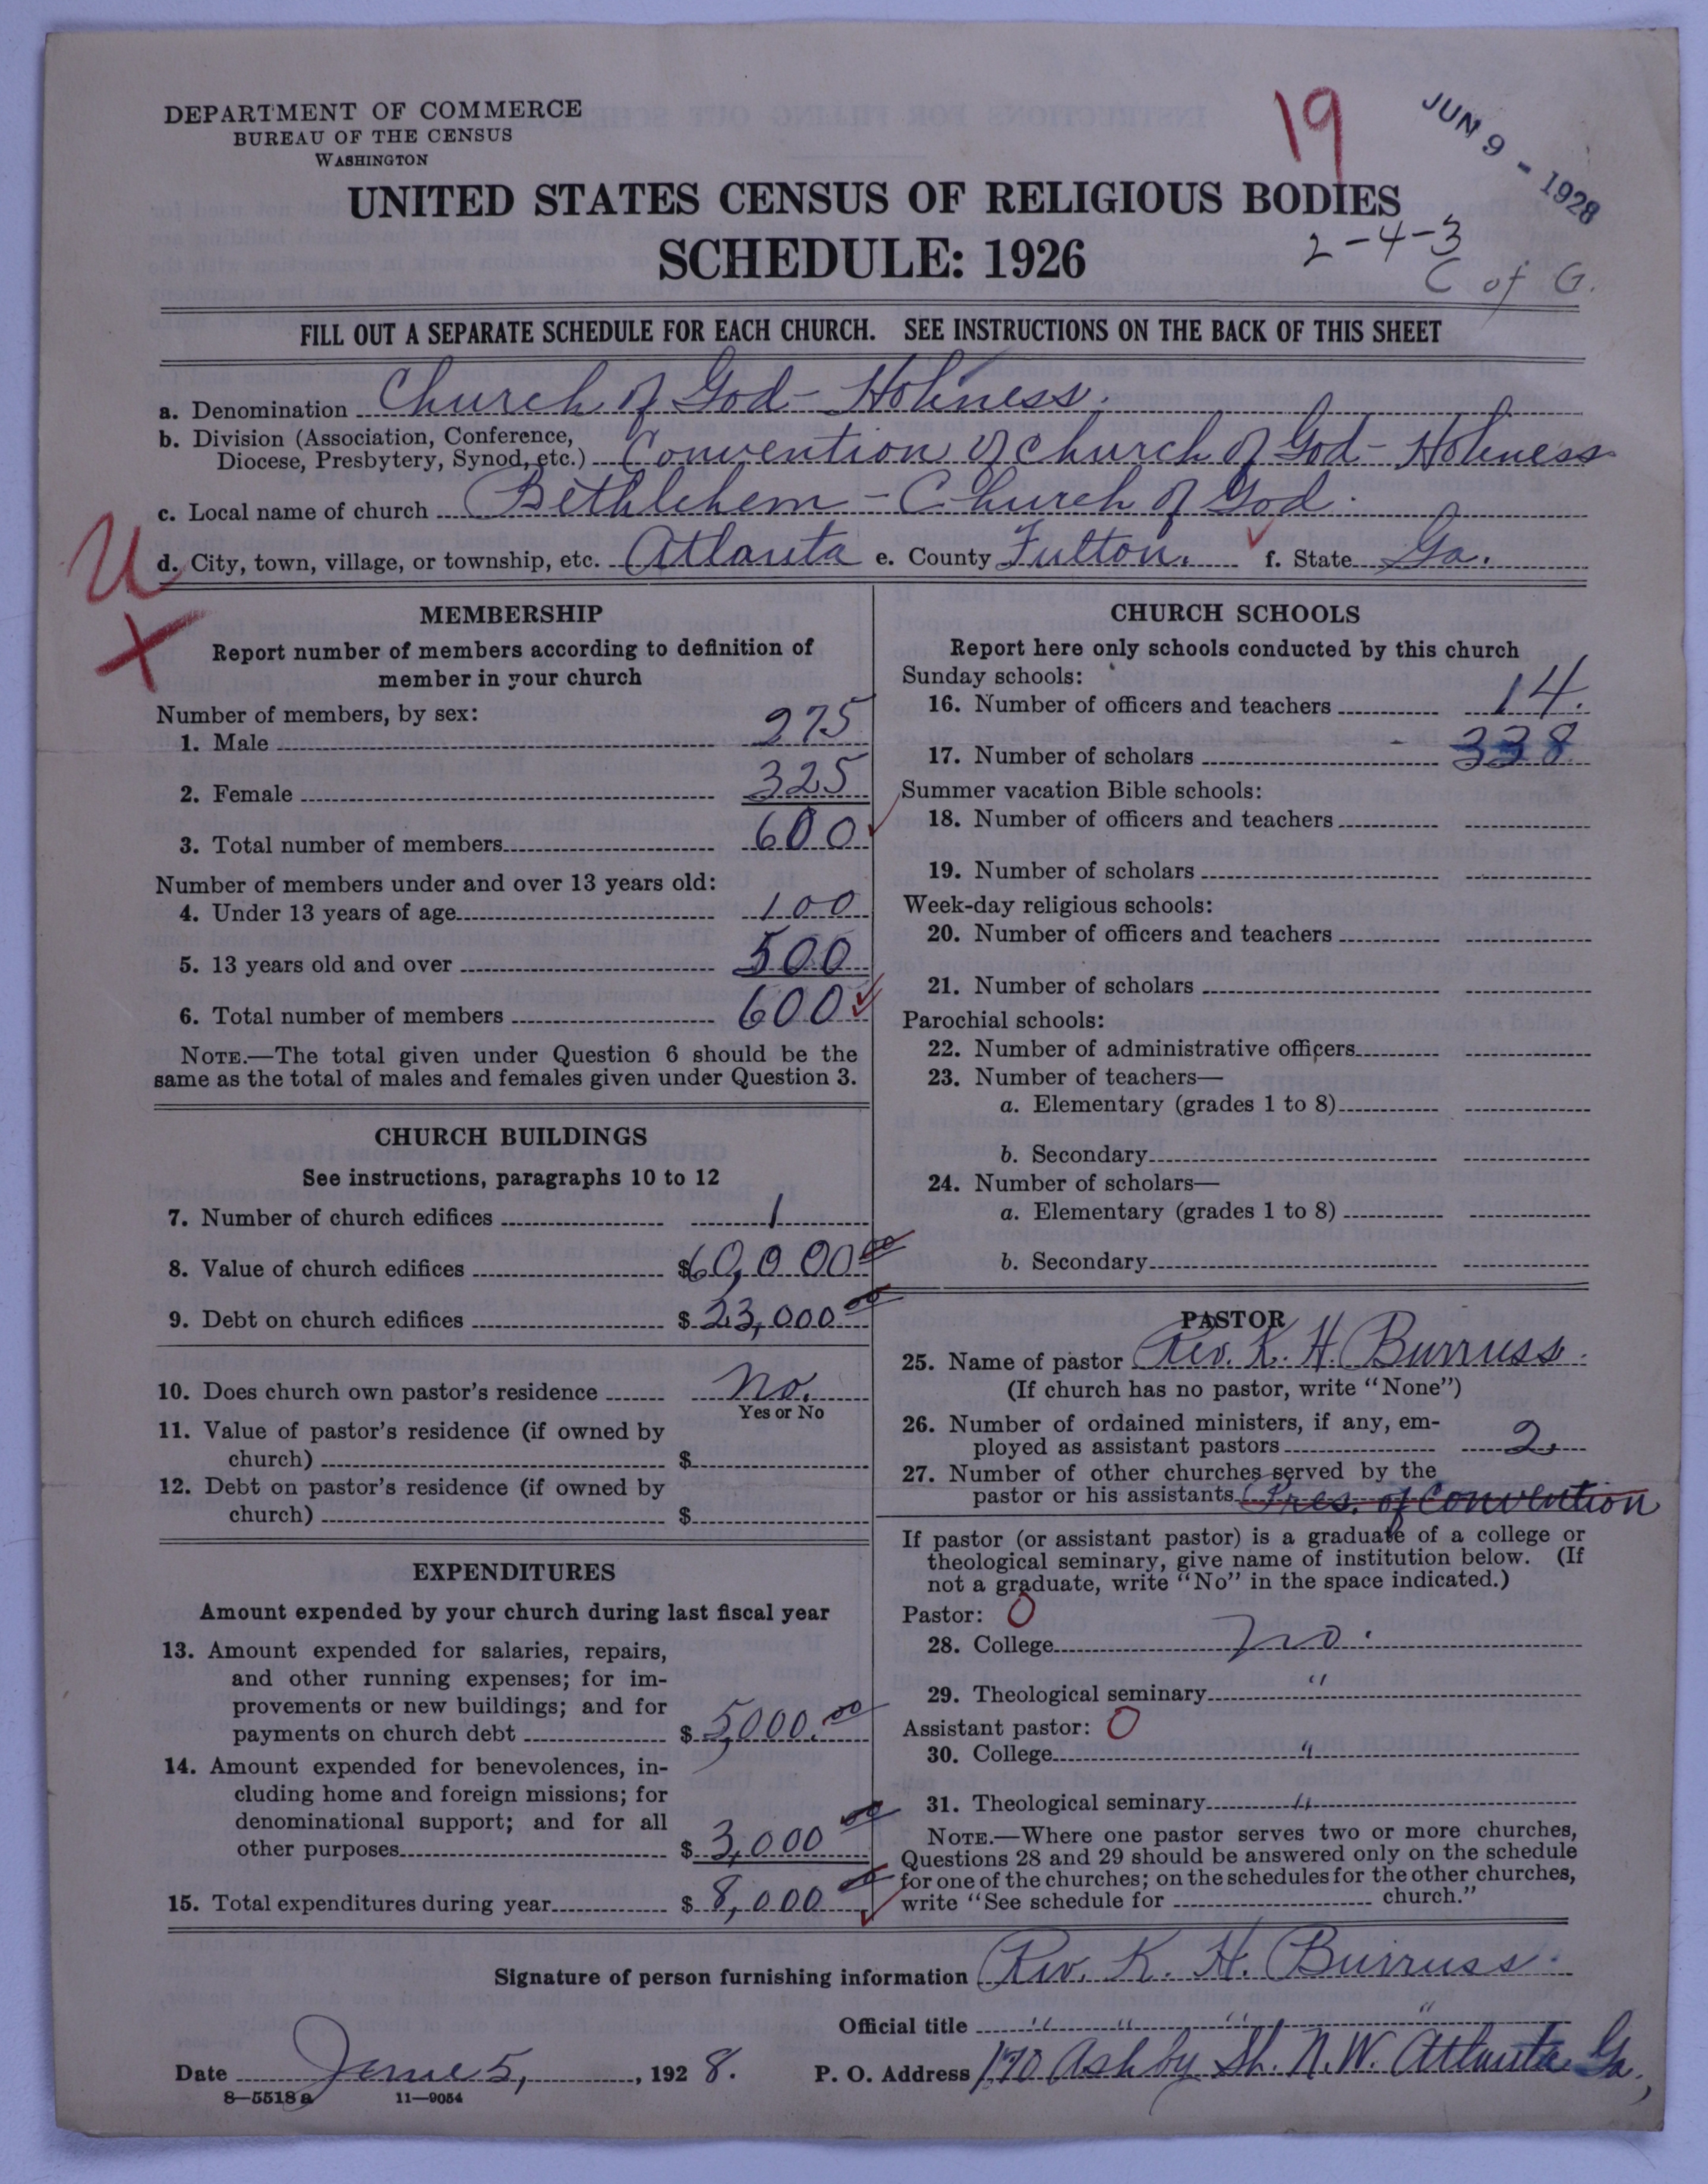 DEPARTMENT OF COMMERCE
BUREAU OF THE CENSUS
WASHINGTON
19
JUN 9 - 1928
UNITED STATES CENSUS OF RELIGIOUS BODIES
SCHEDULE: 1926
2-4-3
C of G.
FILL OUT A SEPARATE SCHEDULE FOR EACH CHURCH. SEE INSTRUCTIONS ON THE BACK OF THIS SHEET
a. Denomination Church of God - Holiness.
b. Division (Association, Conference,
Diocese, Presbytery, Synod, etc.) Convention of Church of God - Holiness
c. Local name of church Bethlehem - Church of God.
U
d. City, town, village, or township, etc. Atlanta e. County Fulton. f. State Ga.
X
MEMBERSHIP
Report number of members according to definition of
member in your church
Number of members, by sex:
1. Male 275
2. Female 325
3. Total number of members 600
Number of members under and over 13 years old:
4. Under 13 years of age 100
5. 13 years old and over 500
6. Total number of members 600
NOTE.—The total given under Question 6 should be the
same as the total of males and females given under Question 3.
CHURCH BUILDINGS
See instructions, paragraphs 10 to 12
7. Number of church edifices 1
8. Value of church edifices $60,000 00
9. Debt on church edifices $23,000 00
10. Does church own pastor's residence No.
Yes or No
11. Value of pastor's residence (if owned by
church) $
12. Debt on pastor's residence (if owned by
church) $
EXPENDITURES
Amount expended by your church during last fiscal year
13. Amount expended for salaries, repairs,
and other running expenses; for im-
provements or new buildings; and for
payments on church debt $5,000. 00
14. Amount expended for benevolences, in-
cluding home and foreign missions; for
denominational support; and for all
other purposes $3,000 00
15. Total expenditures during year $8,000 00
CHURCH SCHOOLS
Report here only schools conducted by this church
Sunday schools:
16. Number of officers and teachers 14.
17. Number of scholars 338
Summer vacation Bible schools:
18. Number of officers and teachers
19. Number of scholars
Week-day religious schools:
20. Number of officers and teachers
21. Number of scholars
Parochial schools:
22. Number of administrative officers
23. Number of teachers—
a. Elementary (grades 1 to 8)
b. Secondary
24. Number of scholars—
a. Elementary (grades 1 to 8)
b. Secondary
PASTOR
25. Name of pastor Rev. K. H. Burruss.
(If church has no pastor, write "None")
26. Number of ordained ministers, if any, em-
ployed as assistant pastors 2.
27. Number of other churches served by the
pastor or his assistants Pres. of Convention
If pastor (or assistant pastor) is a graduate of a college or
theological seminary, give name of institution below. (If
not a graduate, write "No" in the space indicated.)
Pastor: 0
28. College no.
29. Theological seminary "
Assistant pastor: 0
30. College "
31. Theological seminary "
NOTE.—Where one pastor serves two or more churches,
Questions 28 and 29 should be answered only on the schedule
for one of the churches; on the schedules for the other churches,
write "See schedule for church."
Signature of person furnishing information Rev. K. H. Burruss.
Official title " " " "
Date June 5, 1928. P. O. Address 170 Ashby St. N.W. Atlanta Ga,
8—5518 a 11—9054